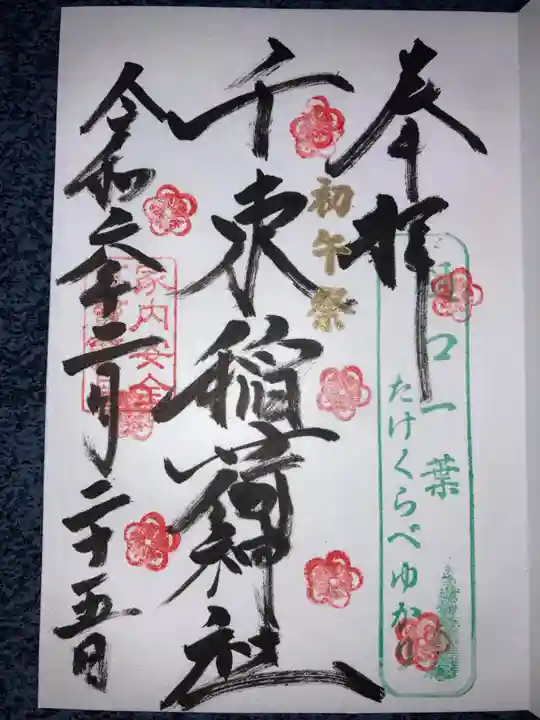 奉拝
樋口一葉
たけくらべゆかり
初午祭
千束稲荷神社
家内安全
令和六年二月二十五日